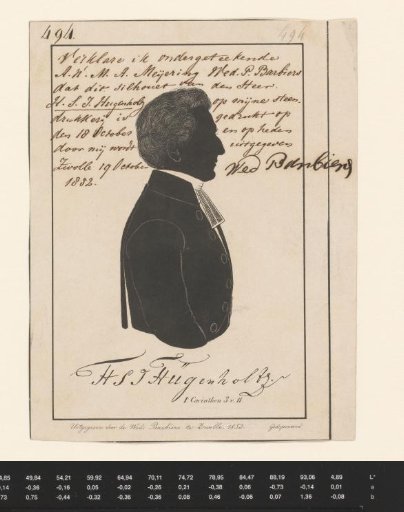 494.
494
Verklare ik ondergeteekende
A. W. M. A. Meijering Wed. P. Barbiers
dat dit silhouet van den Heer
H. S. J. Hugenholtz op mijne steen
drukkerij is gedrukt op
den 18 October en op heden
door mij wordt uitgegeven
Zwolle 19 October
1832.
Wed Barbiers
H S J Hügenholtz
I Corinthen 3 v. 11
Uitgegeven door de Wede. Barbiers te Zwolle. 1832. Gedeponeerd
49,84 54,21 59,92 64,94 70,11 74,72 78,95 84,47 88,19 93,06 4,89 L*
-0,36 -0,16 0,05 -0,02 -0,26 0,21 -0,38 0,06 -0,73 -0,14 0,01 a
0,75 -0,44 -0,32 -0,36 -0,36 0,08 0,46 -0,06 0,07 1,36 -0,08 b